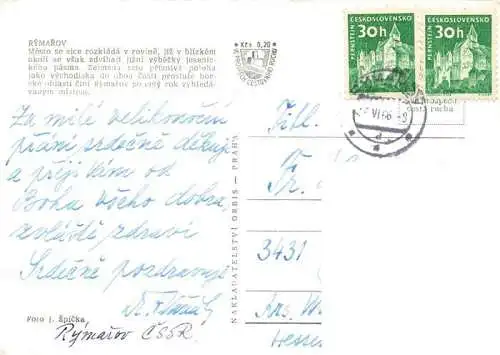 RÝMAŘOV
Město se sice rozkládá v rovině, již v blízkém
okolí se však zdvíhají jižní výběžky jesenic-
kého pásma. Zejména tato příznivá poloha
jako východiska do obou částí prostulé hor-
ské oblasti činí Rýmařov po celý rok vyhledá-
vaným místem.
Kčs 0,20
30h ČESKOSLOVENSKO PERNŠTEJN
30h ČESKOSLOVENSKO PERNŠTEJN
VI 66
Za milé velikonoční
přání srdečně děkuji
a přeji Vám od
Boha všeho dobra,
zvláště zdraví
Srdečně pozdravuje
Foto J. Špička
Rýmařov ČSSR.
NAKLADATELSTVÍ ORBIS — PRAHA
Fr.
3431
Hessen